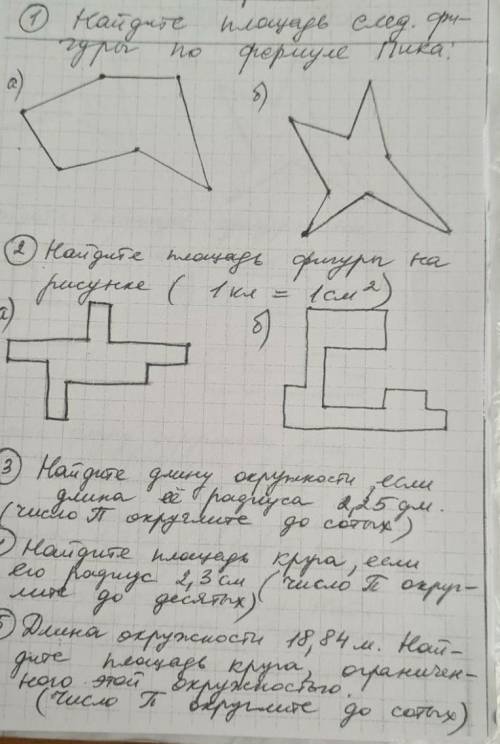 1 Найдите площадь след. фи-
гуры по формуле Пика:
а) б)
2 Найдите площадь фигуры на
рисунке ( 1 кл = 1 см²)
а) б)
3 Найдите длину окружности, если
длина её радиуса 2,25 дм.
(число П округлите до сотых)
Найдите площадь круга, если
его радиус 2,3 см (число П окру-
глите до десятых)
5 Длина окружности 18,84 м. Най-
дите площадь круга, ограничен-
ного этой окружностью.
(Число П округлите до сотых)